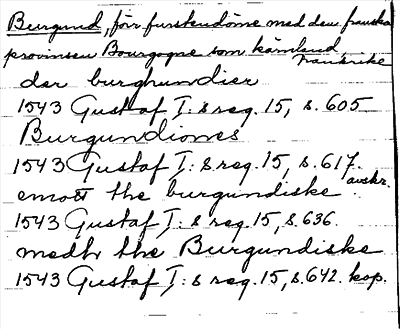 Burgund, förr furstendöme med den franska
provinsen Bourgogne som kärnland
Frankrike
der burghundier
1543 Gustaf I:s reg. 15, s. 605
Burgundiones
1543 Gustaf I:s reg. 15, s. 617. avskr.
emott the burgundiske
1543 Gustaf I:s reg. 15, s. 636.
medh the Burgundiske
1543 Gustaf I:s reg. 15, s. 642. kop.